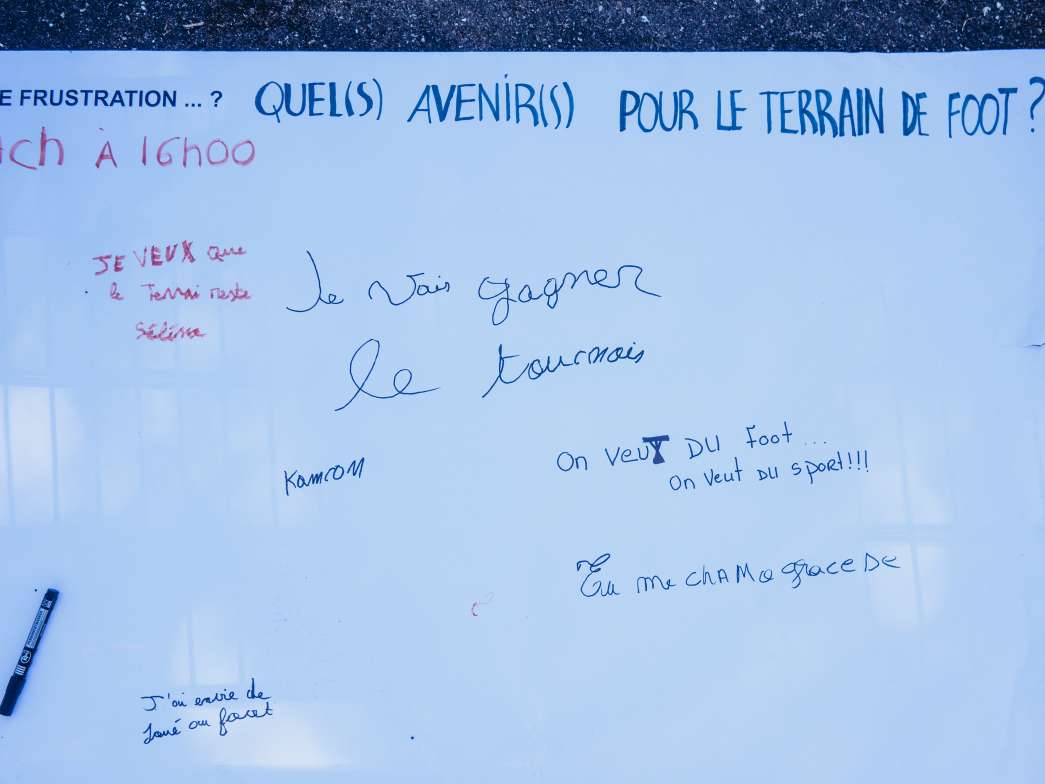 E FRUSTRATION ... ?
QUEL(S) AVENIR(S) POUR LE TERRAIN DE FOOT ?
ch À 16h00
JE VEUX que
le Terrai reste
Je vais gagner
le tournois
Kamron
On veuT DU Foot ...
On veut DU sport!!!
Eu me chAMo grace DE
J'ai envie de
Joué au